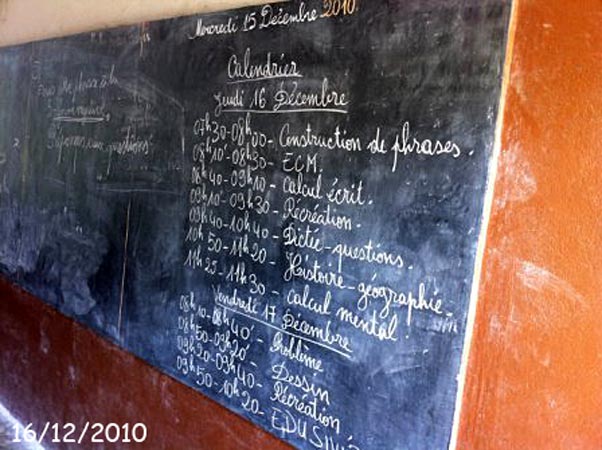 Mercredi 15 Décembre 2010.
Calendrier
Jeudi 16 Décembre
07h30-08h00- Construction de phrases.
08h10'-08h30- ECM.
08h40-09h10- Calcul écrit.
09h10'-09h30- Récréation.
09h40-10h40- Dictée-questions.
10h50-11h20- Histoire-géographie.
11h25-11h30- calcul mental.
Vendredi 17 Décembre
08h10-08h40'- Problème
08h50-09h20'- Dessin
09h20-09h40- Récréation
09h50-10h20-
questions
16/12/2010